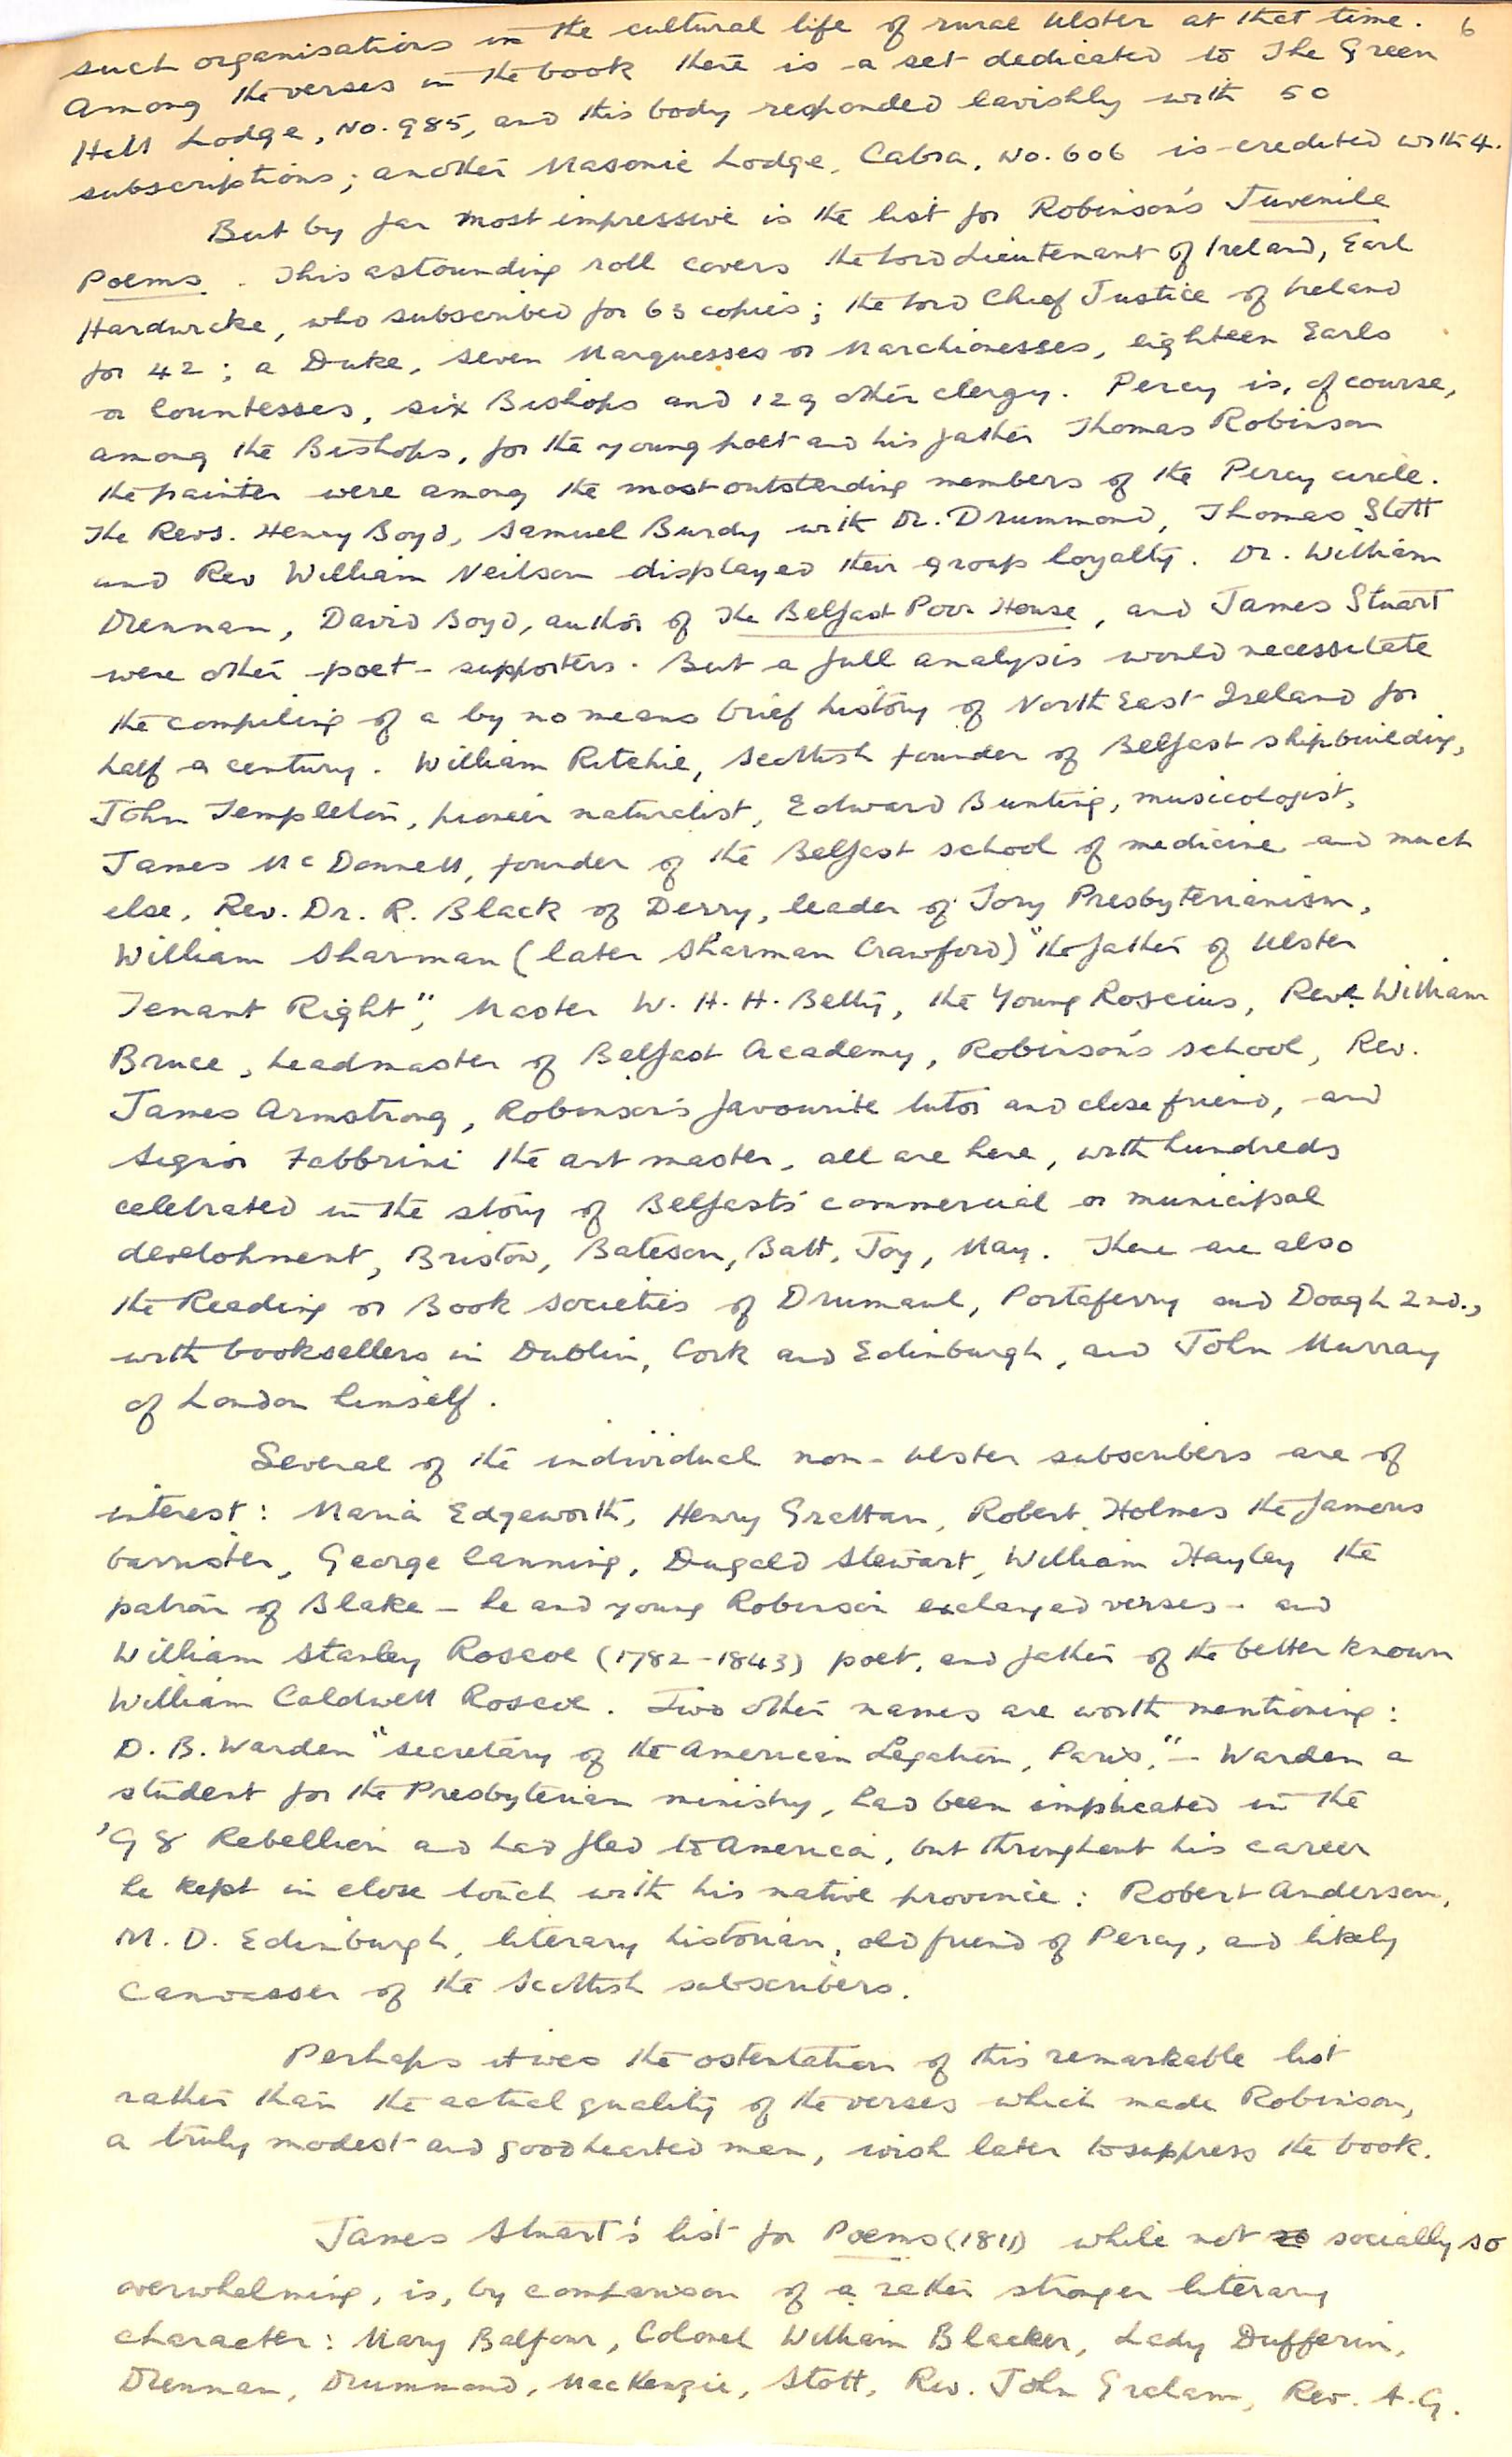 6
such organisations in the cultural life of rural Ulster at that time.
Among the verses in the book there is a set dedicated to The Green
Hill Lodge, No. 985, and this body responded lavishly with 50
subscriptions; another Masonic Lodge, Cabra, No. 606 is credited with 4.
But by far most impressive is the list for Robinson's Juvenile
Poems. This astounding roll covers the Lord Lieutenant of Ireland, Earl
Hardwicke, who subscribed for 63 copies; the Lord Chief Justice of Ireland
for 42; a Duke, seven Marquesses or Marchionesses, eighteen Earls
or Countesses, six Bishops and 129 other clergy. Percy is, of course,
among the Bishops, for the young poet and his father Thomas Robinson
the painter were among the most outstanding members of the Percy circle.
The Revs. Henry Boyd, Samuel Burdy with Dr. Drummond, Thomas Stott
and Rev William Neilson displayed their group loyalty. Dr. William
Drennan, David Boyd, author of The Belfast Poor House, and James Stuart
were other poet-supporters. But a full analysis would necessitate
the compiling of a by no means brief history of North East Ireland for
half a century. William Ritchie, Scottish founder of Belfast shipbuilding,
John Templeton, pioneer naturalist, Edward Bunting, musicologist,
James McDonnell, founder of the Belfast school of medicine and much
else, Rev. Dr. R. Black of Derry, leader of Tory Presbyterianism,
William Sharman (later Sharman Crawford) "the father of Ulster
Tenant Right", Master W. H. H. Betty, the Young Roscius, Rev. William
Bruce, headmaster of Belfast Academy, Robinson's school, Rev.
James Armstrong, Robinson's favourite tutor and close friend, and
Signor Fabbrini the art master, all are here, with hundreds
celebrated in the story of Belfast's commercial or municipal
development, Bristow, Bateson, Batt, Joy, May. There are also
the Reading or Book Societies of Drumaul, Portaferry and Doagh 2nd.,
with booksellers in Dublin, Cork and Edinburgh, and John Murray
of London himself.
Several of the individual non-Ulster subscribers are of
interest: Maria Edgeworth, Henry Grattan, Robert Holmes the famous
barrister, George Canning, Dugald Stewart, William Hayley the
patron of Blake - he and young Robinson exchanged verses - and
William Stanley Roscoe (1782-1843) poet, and father of the better known
William Caldwell Roscoe. Two other names are worth mentioning:
D. B. Warden "secretary of the American Legation, Paris," - Warden a
student for the Presbyterian ministry, had been implicated in the
'98 Rebellion and had fled to America, but throughout his career
he kept in close touch with his native province: Robert Anderson,
M. D. Edinburgh, literary historian, old friend of Percy, and likely
canvasser of the Scottish subscribers.
Perhaps it was the ostentation of this remarkable list
rather than the actual quality of the verses which made Robinson,
a truly modest and good hearted man, wish later to suppress the book.
James Stuart's list for Poems (1811) while not so socially so
overwhelming, is, by comparison of a rather stronger literary
character: Mary Balfour, Colonel William Blacker, Lady Dufferin,
Drennan, Drummond, MacKenzie, Stott, Rev. John Graham, Rev. A. G.